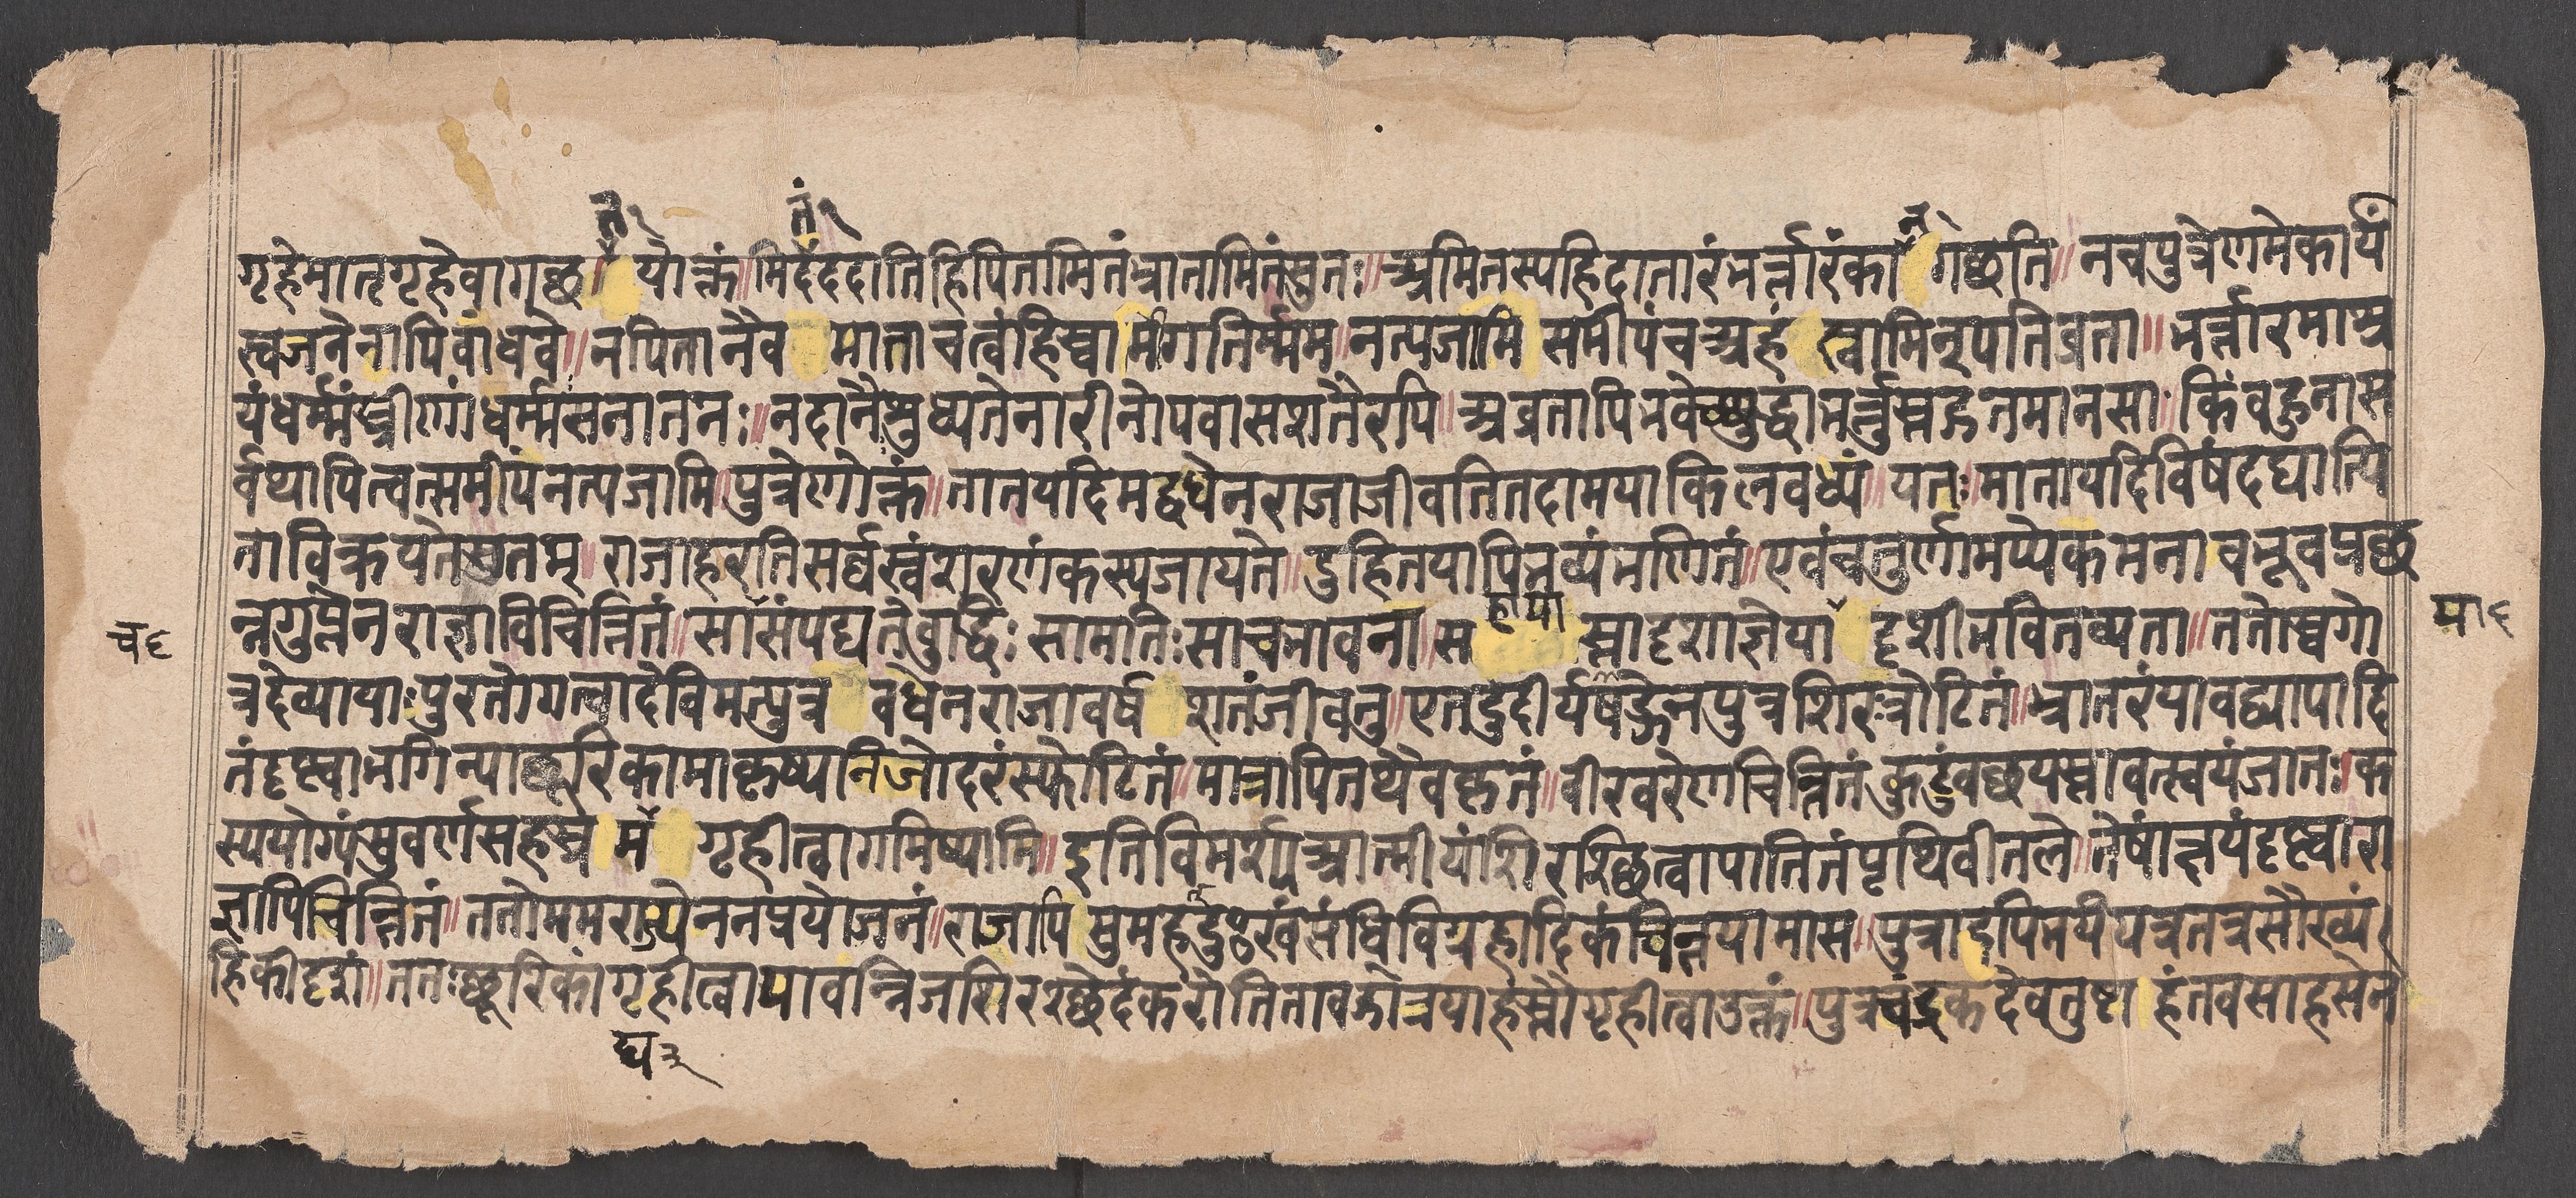 त१ तं१ न१
गृहेमातृगृहेवागछ॥ तयोक्तं॥मितंददातिहिपितामितंभ्रातामितंसुतः॥अमितस्यहिदातारंभर्त्तारंका गछति॥नचपुत्रेणमेकार्यं
स्वजनेनापिबांधवे॥नपितानैव माताचत्वंहिस्वामीगतिर्म्मम॥नत्यजामि समीपंचअहं स्वामिन्पतिव्रता॥भर्त्तारमाश्र
यंधर्म्मंस्त्रीणांधर्म्मसनातनः॥नदानैशुध्यतेनारीनोपवासशतैरपि॥अव्रतापिभवेछुद्धाभर्त्तुस्तद्गतमानसा॥किंवहुनास
र्वथापित्वत्समीपंनत्यजामि॥पुत्रेणोक्तं॥तातयदिमद्वधेनराजाजीवतितदामयाकिलवध्यं॥यतः॥मातायदिविषंदद्यात्पि
ताविक्रयतेसुतम्॥राजाहरतिसर्वस्वंशरणंकस्यजायते॥दुहितयापितव्यंभणितं॥एवंचतुर्णामप्येकमनाबभूवप्रछ
न्नगुप्तेनराज्ञाविचिन्तितं॥सासंपद्यतेबुद्धिः सामतिःसाचभावना॥सहायास्तादृशाज्ञेया दृशीभवितव्यता॥ततोस्वगो
च६
या६
त्रदेव्यायाःपुरतोगत्वादेविमत्पुत्र वधेनराजावर्ष शतंजीवतु॥एतदुदीर्यषड्गेनपुत्रशिरःत्रोटितं॥भ्रातरंयावद्व्यापादि
तंदृष्ट्वाभगिन्याछूरिकामाकृष्यनिजोदरंस्फोटितं॥मात्रापितथैवकृतं॥वीरवरेणचिन्तितंकुटुंबछयस्तावत्स्वयंजातः॥क
स्ययोग्यंसुवर्णसहस्र म गृहीत्वागमिष्यामि॥इतिविमर्श्यआत्मीयांशिरश्छित्वापातितंपृथिवीतले॥तेषांत्नयंदृष्ट्वारा
ज्ञापिचिन्तितं॥ततोममराज्येननप्रयोजनं॥राजापि सुमहद्दुःखंसंधिविग्रहादिकंचिन्तयामास॥पुत्रादपिभयंयत्रतत्रसौख्यं
हिकीदृशं॥ततःछूरिकांगृहीत्वायावन्निजशिरश्छेदंकरोतितावद्गोत्रयाहस्तौगृहीत्वाउक्तं॥पुत्रचंद्रकदेवतुष्टा हंतवसाहसेन
द्य३